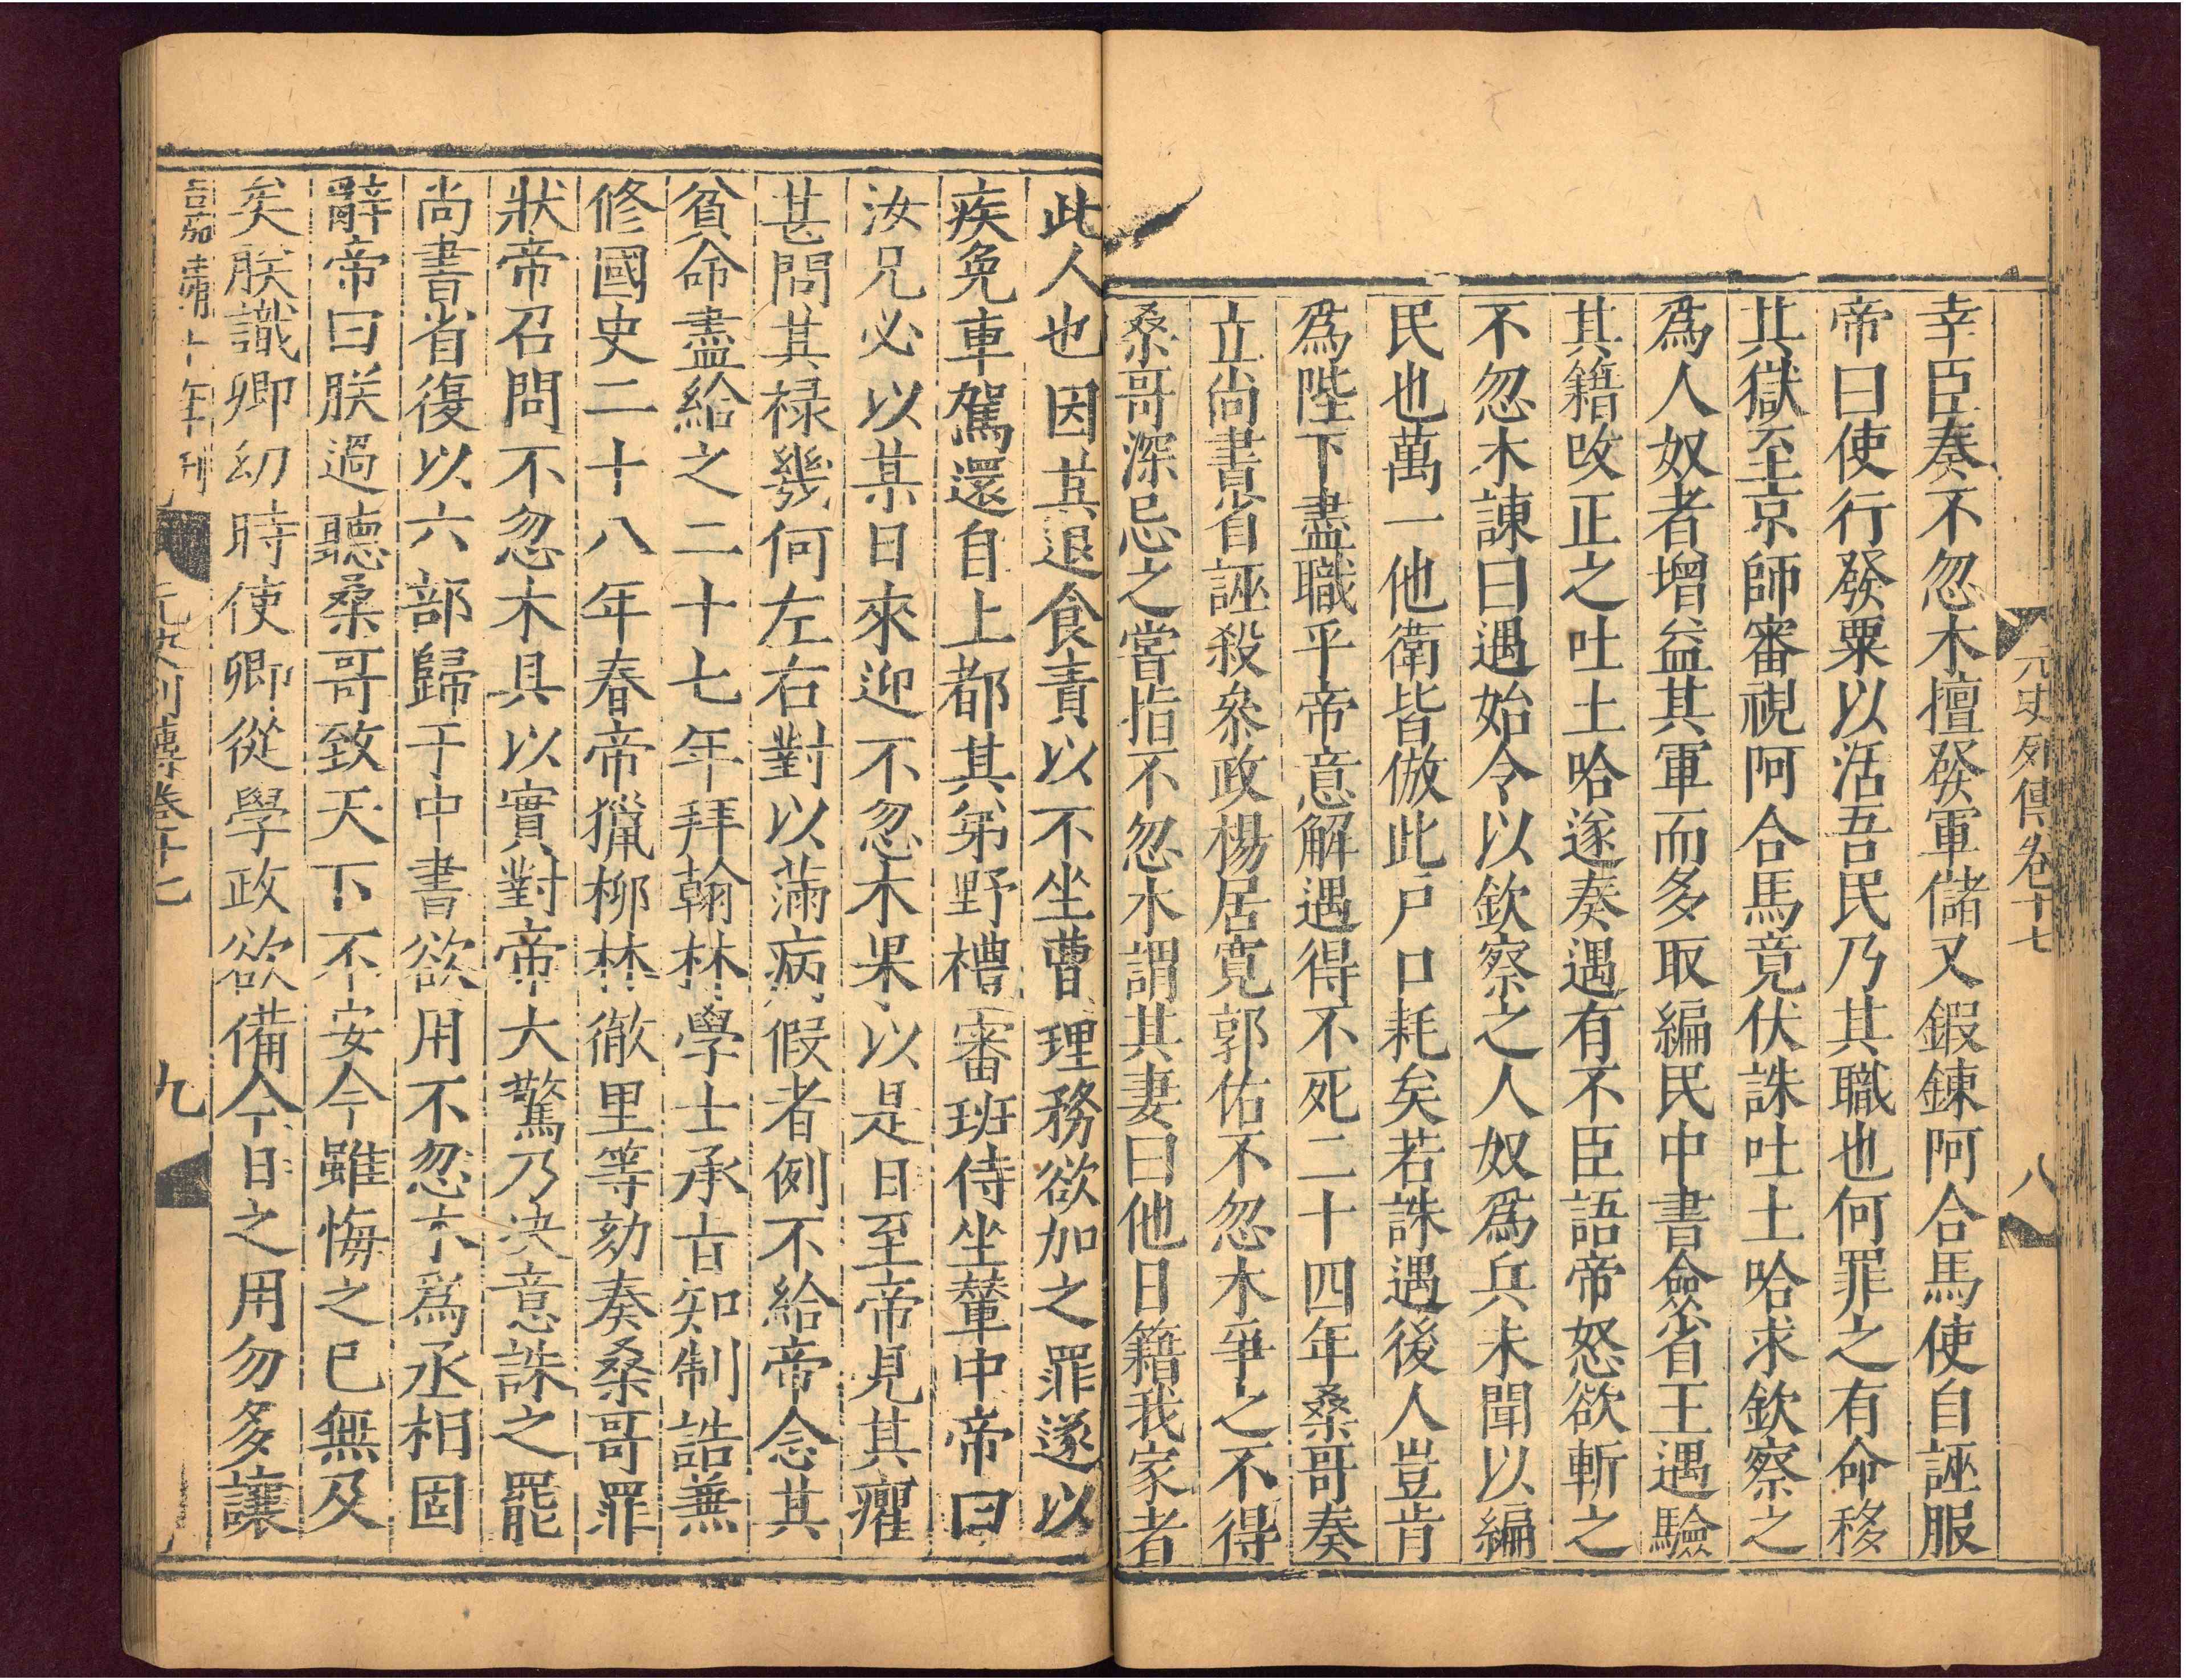 元史列傳卷十七
八
幸臣奏不忽木擅發軍儲又鍜鍊阿合馬使自誣服
帝曰使行發粟以活吾民乃其職也何罪之有命移
其獄至京師審視阿合馬竟伏誅吐土哈求欽察之
爲人奴者增益其軍而多取編民中書僉省王遇驗
其籍改正之吐土哈遂奏遇有不臣語帝怒欲斬之
不忽木諫曰遇始令以欽察之人奴爲兵未聞以編
民也萬一他衛皆倣此户口耗矣若誅遇後人豈肯
爲陛下盡職乎帝意解遇得不死二十四年桑哥奏
立尚書省誣殺叅政楊居寛郭佑不忽木爭之不得
桑哥深忌之嘗指不忽木謂其妻曰他日籍我家者
此人也因其退食責以不坐曹理務欲加之罪遂以
疾免車駕還自上都其弟野禮審班侍坐輦中帝曰
汝兄必以某日來迎不忽木果以是日至帝見其癯
甚問其禄幾何左右對以滿病假者例不給帝念其
貧命盡給之二十七年拜翰林學士承旨知制誥兼
修國史二十八年春帝獵柳林徹里等劾奏桑哥罪
狀帝召問不忽木具以實對帝大驚乃决意誅之罷
尚書省復以六部歸于中書欲用不忽木爲丞相固
辭帝曰朕過聽桑哥致天下不安今雖悔之已無及
矣朕識卿幼時使卿從學政欲備今日之用勿多讓
元史列傳卷十七
九